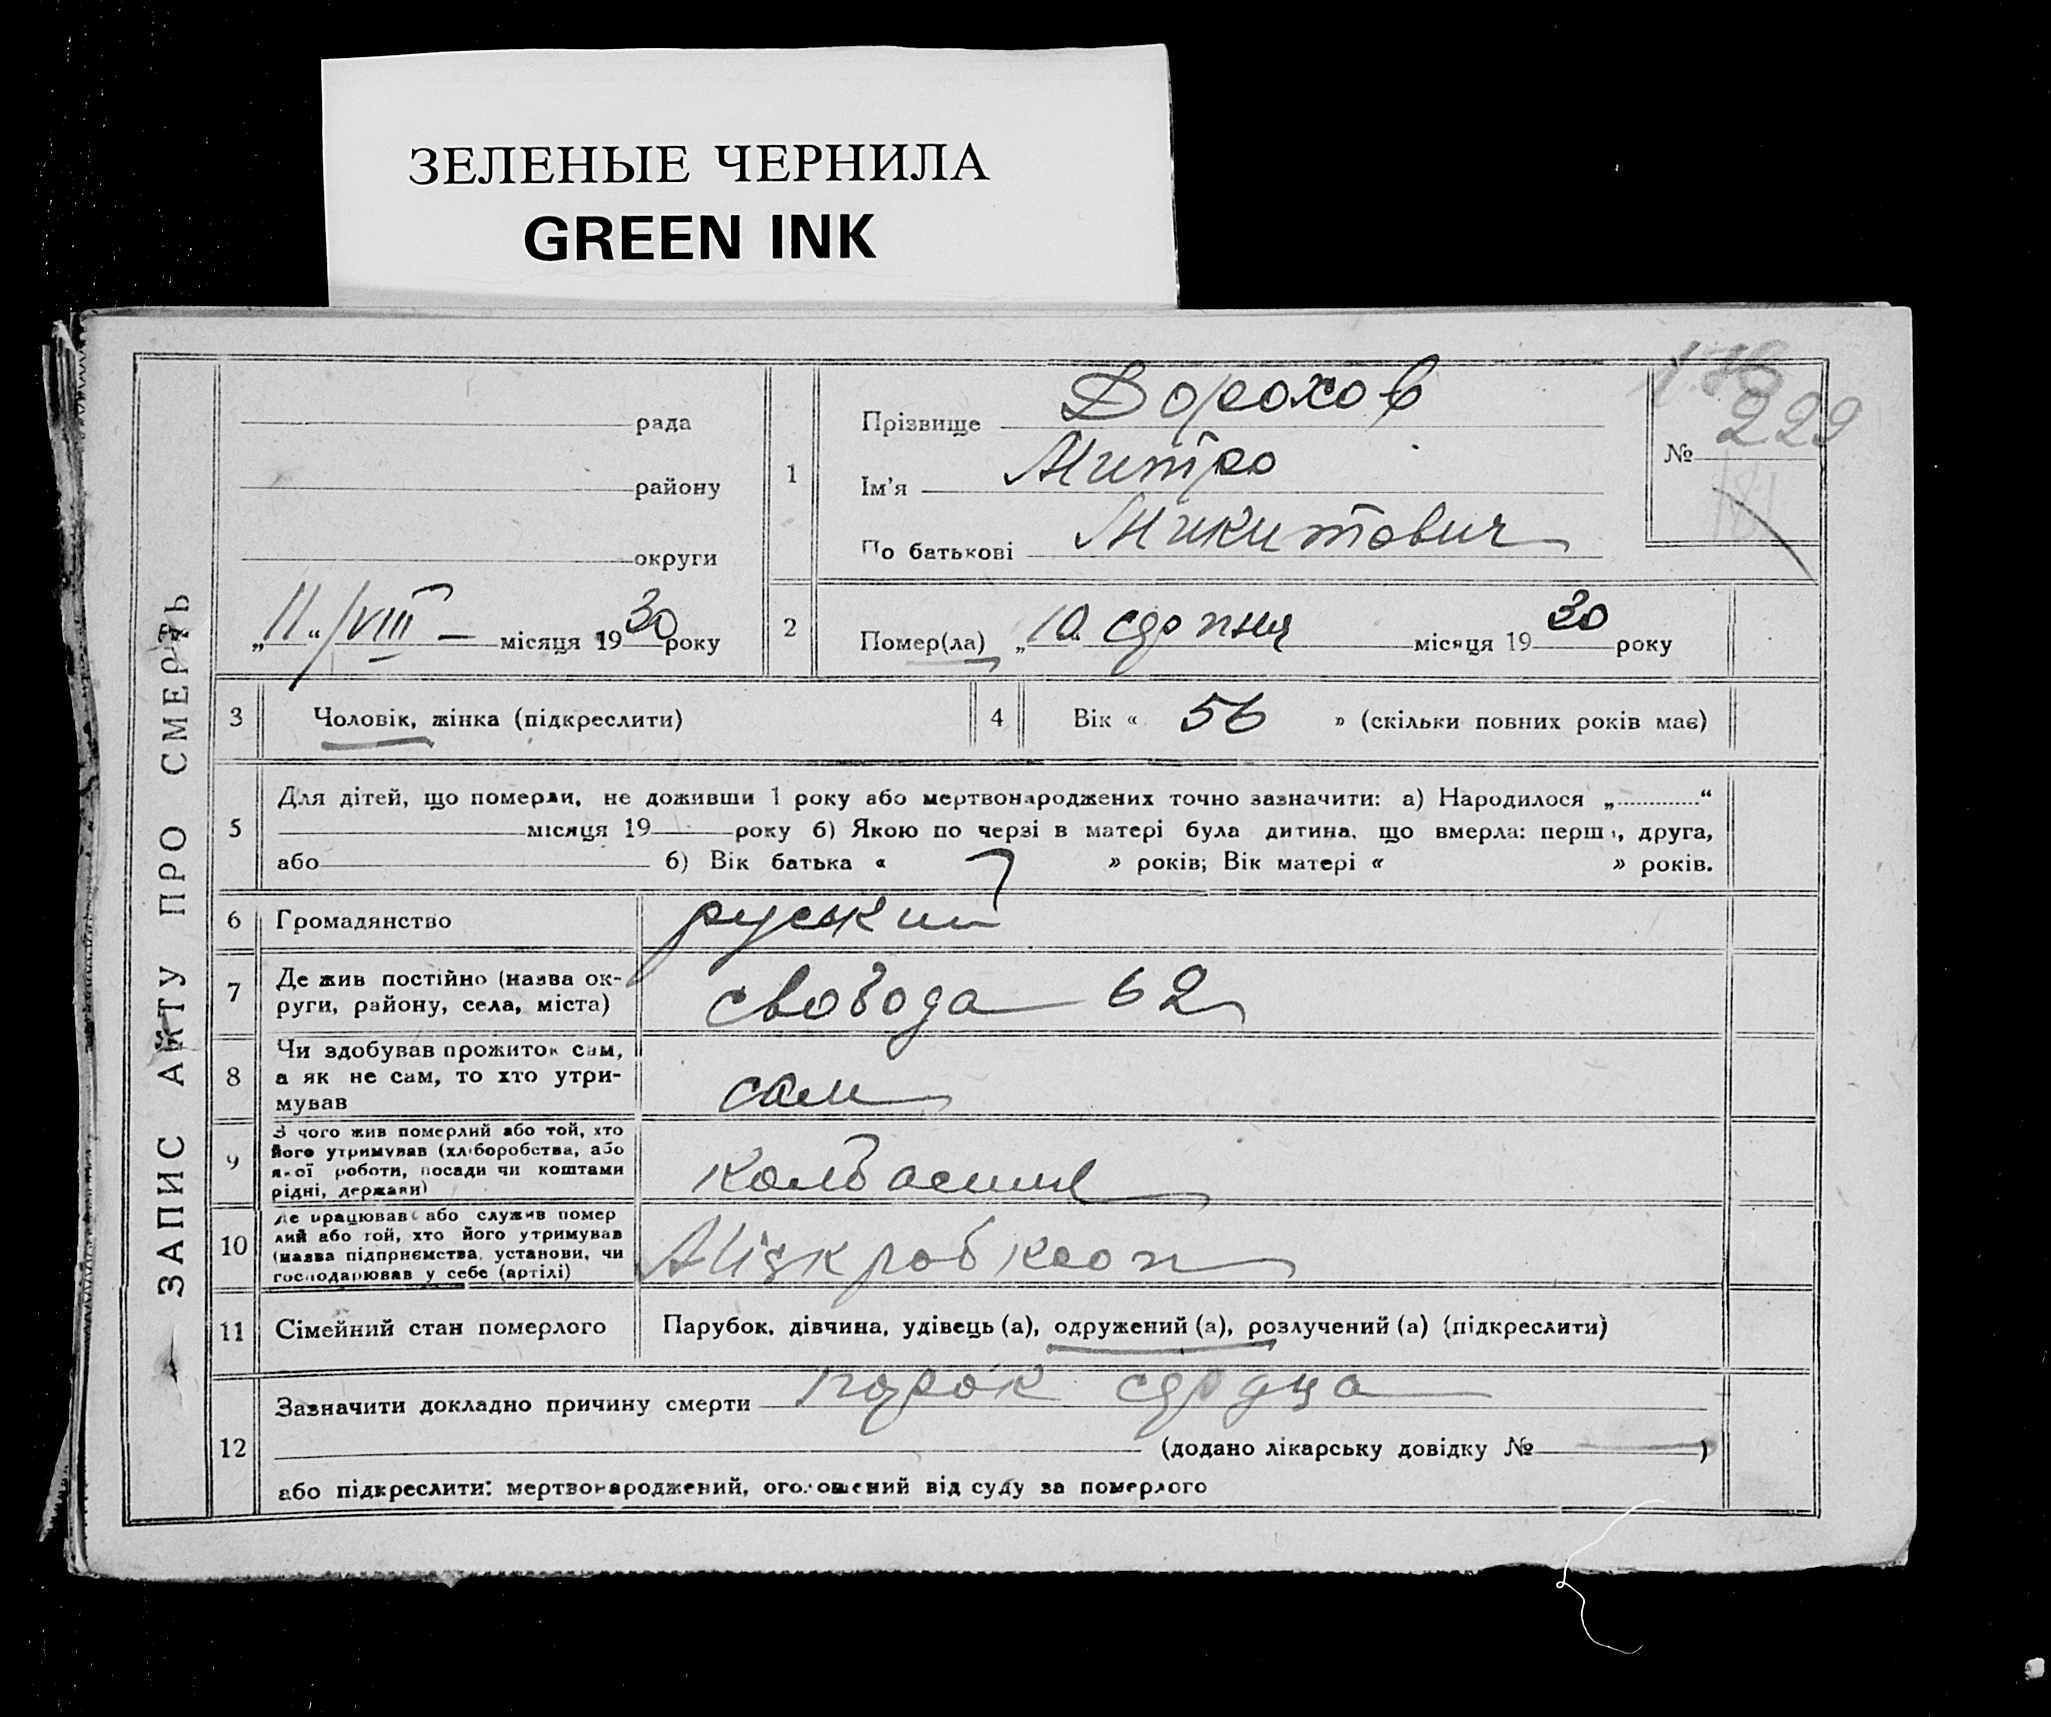 ЗЕЛЕНЫЕ ЧЕРНИЛА
GREEN INK
ЗАПИС АКТУ ПРО СМЕРТЬ
рада
району
округи
„11“ VIII місяця 1930 року
1
Прізвище Дорохов
Ім'я Митро
По батькові Микитович
№ 229
2
Помер(ла) „10 серпня місяця 1930 року
3
Чоловік, жінка (підкреслити)
4
Вік « 56 » (скільки повних років має)
5
Для дітей, що померли, не доживши 1 року або мертвонароджених точно зазначити: а) Народилося „ “
місяця 19 року б) Якою по черзі в матері була дитина, що вмерла: перша, друга,
або б) Вік батька « » років; Вік матері « » років.
6
Громадянство
руський
7
Де жив постійно (назва ок-
руги, району, села, міста)
свобода 62
8
Чи здобував прожиток сам,
а як не сам, то хто утри-
мував
сам
9
З чого жив померлий або той, хто
його утримував (хліборобства, або
якої роботи, посади чи коштами
рідні, держави)
колбасник
10
Де працював або служив помер
лий або той, хто його утримував
(назва підприємства, установи, чи
господарював у себе (артілі)
Міськробкооп
11
Сімейний стан померлого
Парубок, дівчина, удівець (а), одружений (а), розлучений (а) (підкреслити)
12
Зазначити докладно причину смерти порок сердца
(додано лікарську довідку № )
або підкреслити: мертвонароджений, оголошений від суду за померлого